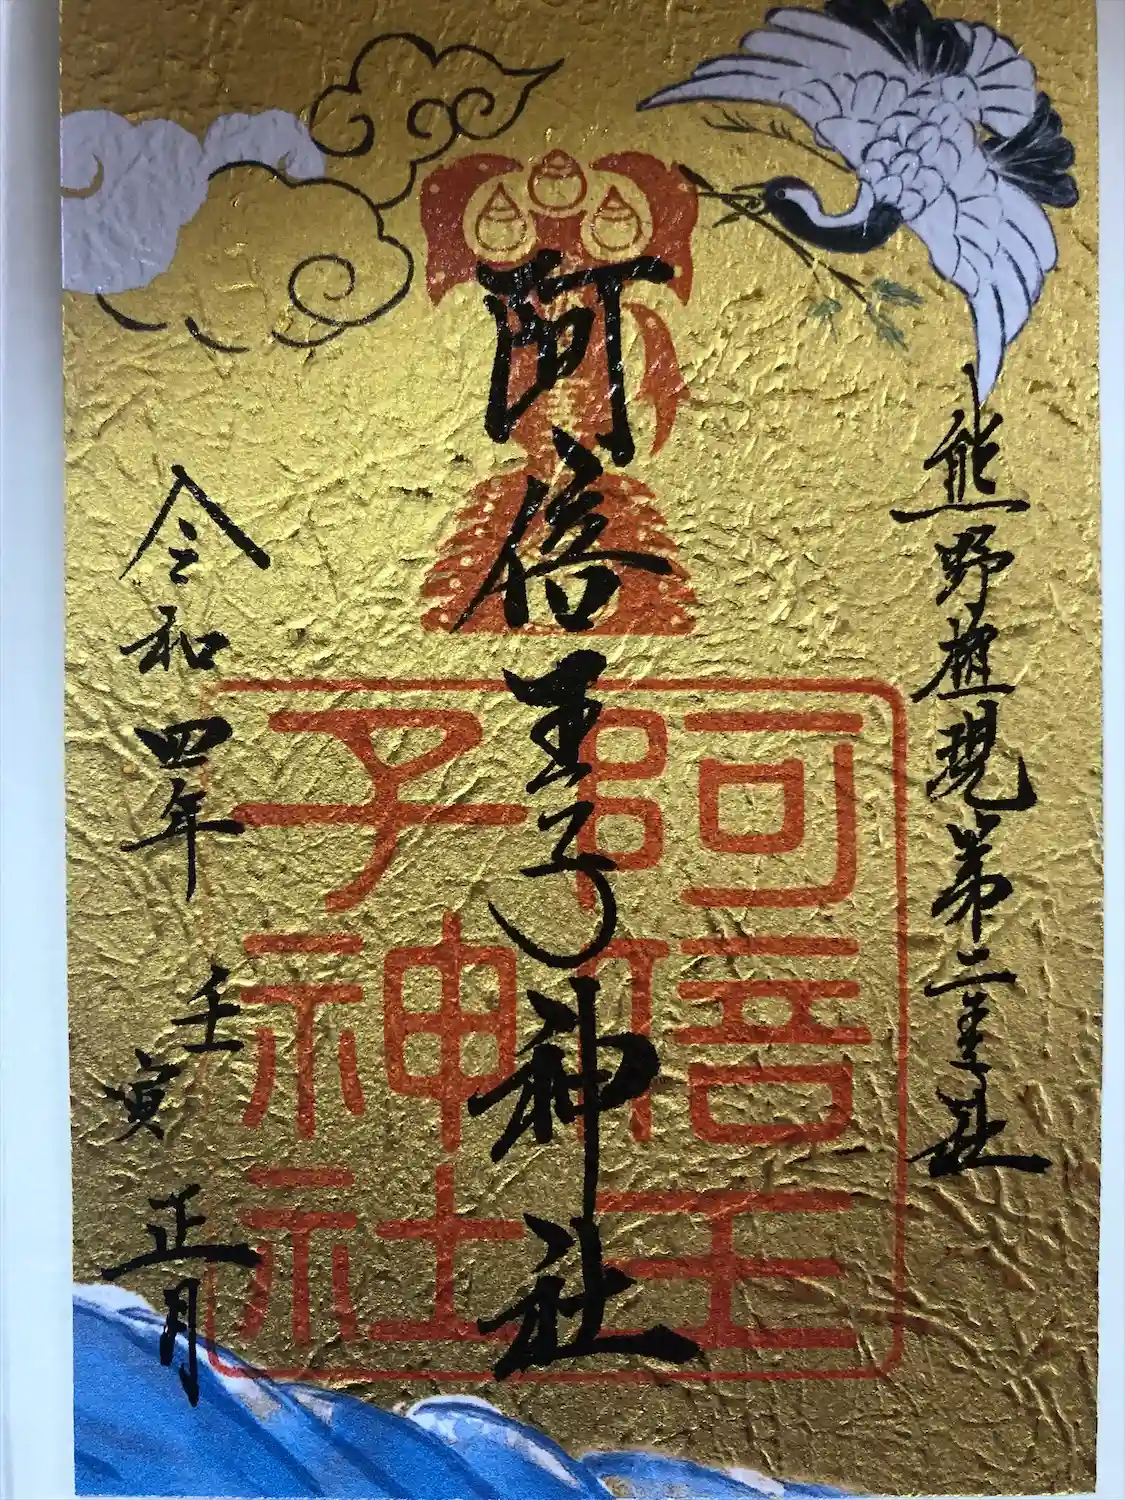 熊野権現第二王子社
阿倍王子神社
令和四年
壬寅
正月
阿倍王
子神社